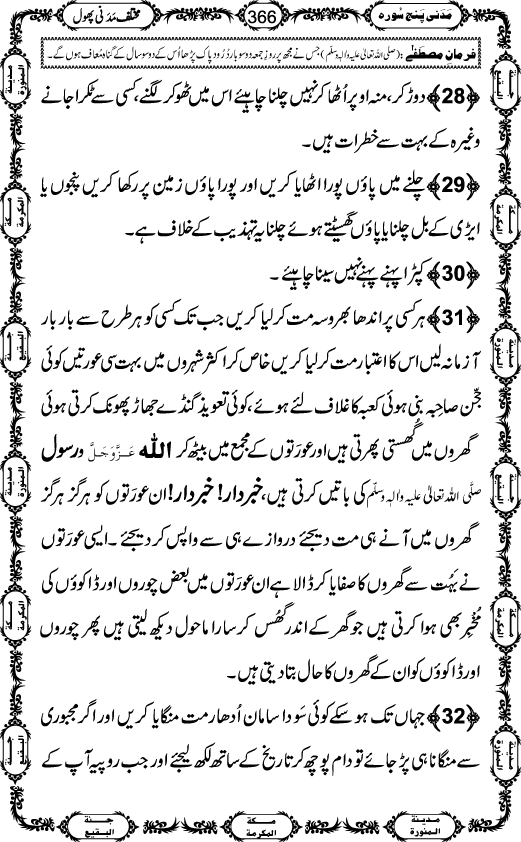 مَدَنی پَنج سُورہ
366
مختلف مَدَنی پھول
فرمانِ مصطفٰے : (صلی اللہ تعالیٰ علیہ واٰلہٖ وسلّم) جس نے مجھ پر روزِ جمعہ دو سو بار دُرُودِ پاک پڑھا اُس کے دو سو سال کے گناہ مُعاف ہوں گے۔
﴿28﴾ دوڑ کر، منہ اوپر اُٹھا کر نہیں چلنا چاہیئے اس میں ٹھوکر لگنے، کسی سے ٹکرا جانے
وغیرہ کے بہت سے خطرات ہیں۔
﴿29﴾ چلنے میں پاؤں پورا اٹھایا کریں اور پورا پاؤں زمین پر رکھا کریں پنجوں یا
ایڑی کے بل چلنا یا پاؤں گھسیٹتے ہوئے چلنا یہ تہذیب کے خلاف ہے۔
﴿30﴾ کپڑا پہنے پہنے نہیں سینا چاہئے ۔
﴿31﴾ ہر کسی پر اندھا بھروسہ مت کر لیا کریں جب تک کسی کو ہر طرح سے بار بار
آزما نہ لیں اس کا اعتبار مت کر لیا کریں خاص کر اکثر شہروں میں بہت سی عورتیں کوئی
حَجّن صاحِبہ بنی ہوئی کعبہ کا غلاف لئے ہوئے، کوئی تعویذ گنڈے جھاڑ پھونک کرتی ہوئی
گھروں میں گُھستی پھرتی ہیں اور عورَتوں کے مجمع میں بیٹھ کر اللہ عَزَّوَجَلَّ و رسول
صلَّی اللہ تعالیٰ علیہ واٰلہٖ وسلَّم کی باتیں کرتی ہیں، خبردار! خبردار! ان عورَتوں کو ہرگز ہرگز
گھروں میں آنے ہی مت دیجئے دروازے ہی سے واپس کر دیجئے ۔ ایسی عورَتوں
نے بَہُت سے گھروں کا صفایا کر ڈالا ہے ان عورَتوں میں بعض چوروں اور ڈاکوؤں کی
مُخبِر بھی ہوا کرتی ہیں جو گھر کے اندر گھس کر سارا ماحول دیکھ لیتی ہیں پھر چوروں
اور ڈاکوؤں کو ان کے گھروں کا حال بتا دیتی ہیں۔
﴿32﴾ جہاں تک ہو سکے کوئی سَودا سامان اُدھار مت منگایا کریں اور اگر مجبوری
سے منگانا ہی پڑ جائے تو دام پوچھ کر تاریخ کے ساتھ لکھ لیجئے اور جب روپیہ آپ کے
مدینۃ المنورۃ
جنۃ البقیع
مکۃ المکرمۃ
مدینۃ المنورۃ
جنۃ البقیع
مکۃ المکرمۃ
مدینۃ المنورۃ
جنۃ البقیع
مکۃ المکرمۃ
مدینۃ المنورۃ
جنۃ البقیع
مکۃ المکرمۃ
مدینۃ المنورۃ
جنۃ البقیع
مکۃ المکرمۃ
مدینۃ المنورۃ